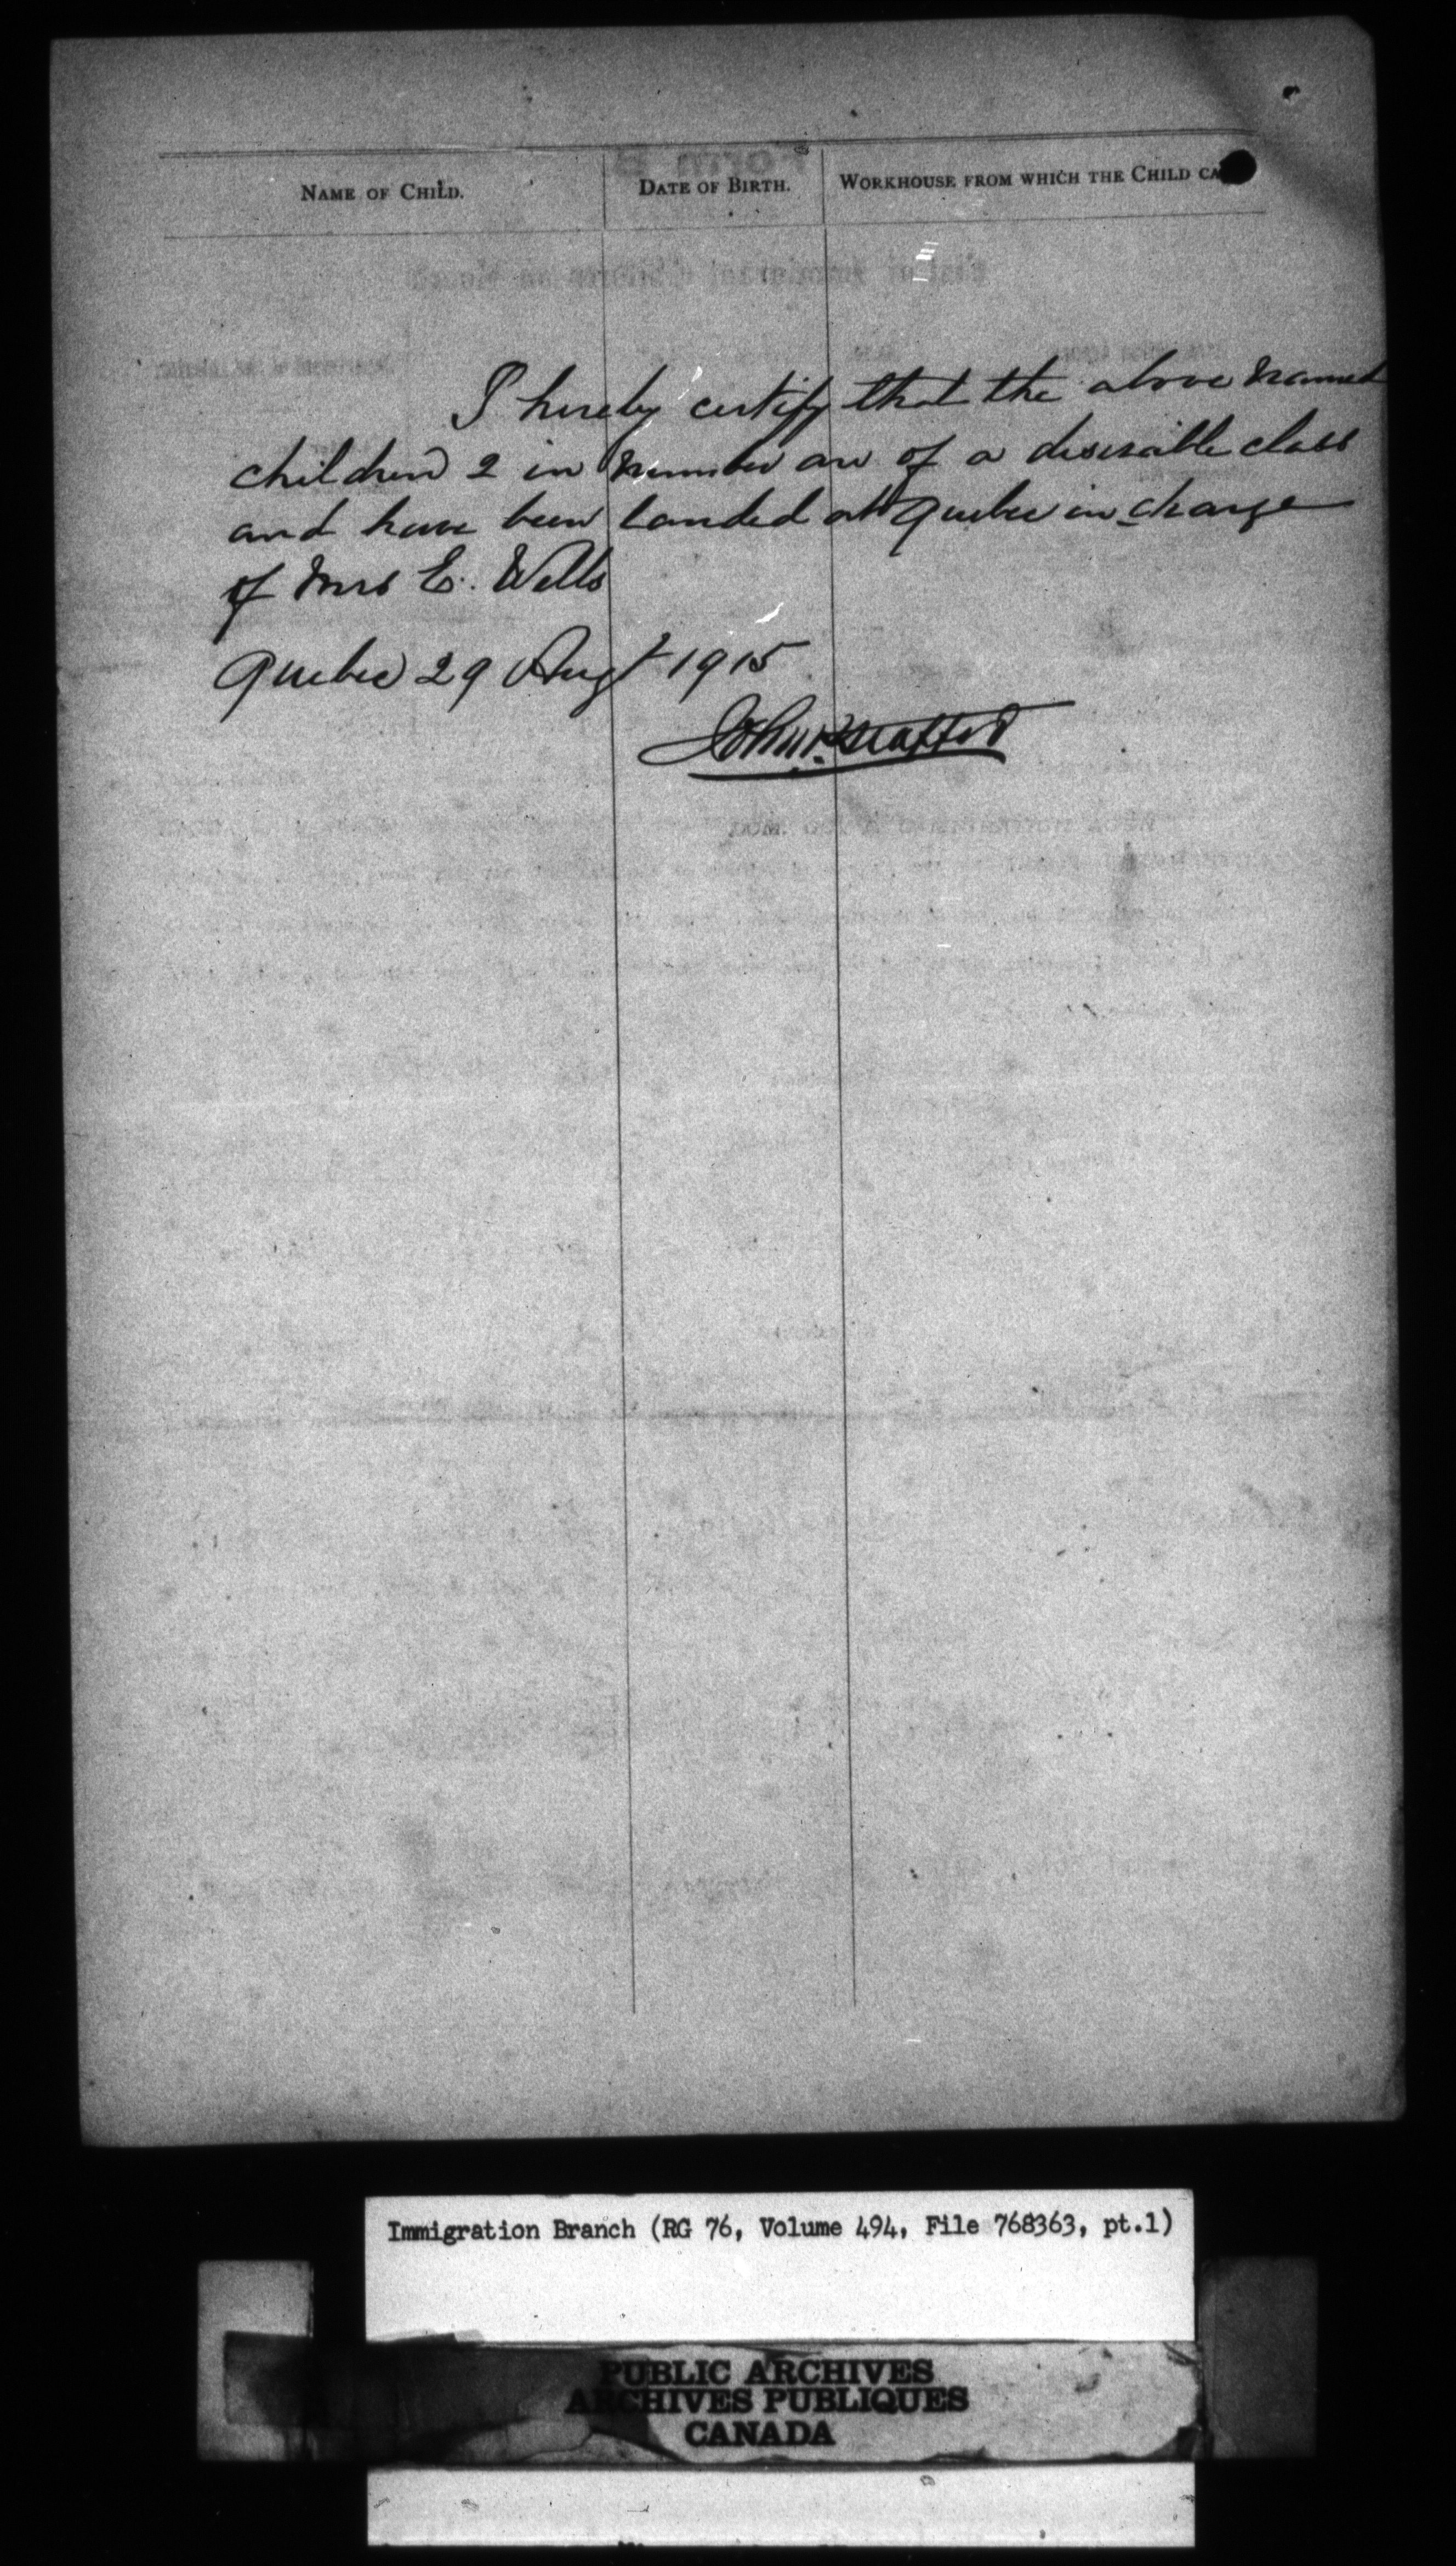 NAME OF CHILD. DATE OF BIRTH. WORKHOUSE FROM WHICH THE CHILD CA
I hereby certify that the above named
children 2 in number are of a desirable class
and have been landed at Quebec in charge
of Mrs E. Wells
Quebec 29 Augt 1915
John P. Stafford
Immigration Branch (RG 76, Volume 494, File 768363, pt.1)
PUBLIC ARCHIVES
ARCHIVES PUBLIQUES
CANADA